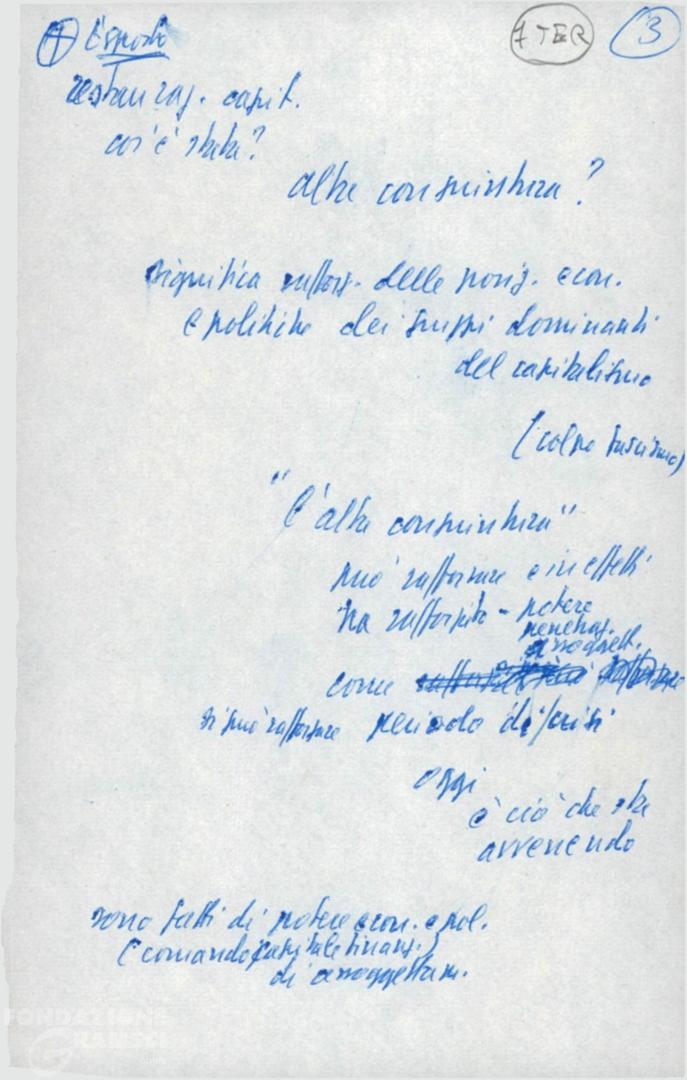 7 TER 3
restauraz. capit.
cos'è stata?
alta congiuntura?
significa rafforz. delle posiz. econ.
e politiche dei gruppi dominanti
del capitalismo
(colpo fascismo)
"L'alta congiuntura"
può rafforzare e in effetti
ha rafforzato - potere
penetraz.
assoggett.
come
si può rafforzare periodo di crisi
oggi
è ciò che sta
avvenendo
sono fatti di potere econ. e pol.
(comando capitale finanz.)
di assoggettam.
FONDAZIONE
GRAMSCI